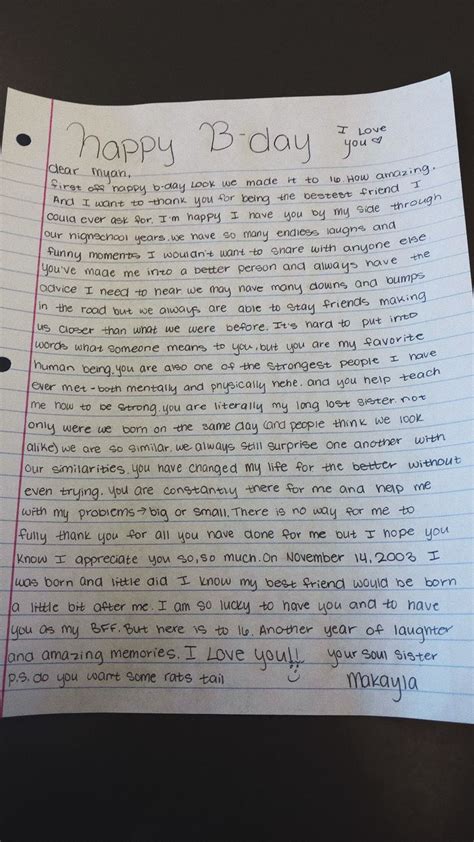 happy B-day I Love
you ♡
dear Myah,
first off happy b-day Look we made it to 16. How amazing.
And I want to thank you for being the bestest friend I
could ever ask for. I'm happy I have you by my side through
our highschool years. we have so many endless laughs and
funny moments I wouldn't want to share with anyone else
you've made me into a better person and always have the
advice I need to hear we may have many downs and bumps
in the road but we always are able to stay friends making
us closer than what we were before. It's hard to put into
words what someone means to you, but you are my favorite
human being. you are also one of the strongest people I have
ever met - both mentally and physically hehe. and you help teach
me how to be strong. you are literally my long lost sister. not
only were we born on the same day (and people think we look
alike) we are so similar. we always still surprise one another with
our similarities. you have changed my life for the better without
even trying. you are constantly there for me and help me
with my problems → big or small. There is no way for me to
fully thank you for all you have done for me but I hope you
know I appreciate you so, so much. On November 14, 2003 I
was born and little did I know my best friend would be born
a little bit after me. I am so lucky to have you and to have
you as my BFF. But here is to 16. Another year of laughter
and amazing memories. I Love you!! your soul sister
p.s. do you want some rats tail Makayla